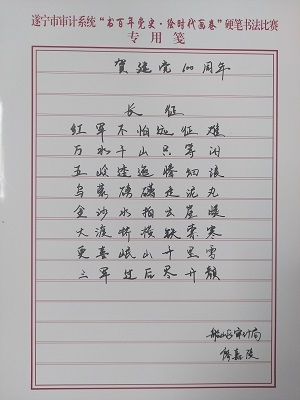 遂宁市审计系统“书百年党史·绘时代画卷”硬笔书法比赛
专用笺
贺建党100周年
长征
红军不怕远征难
万水千山只等闲
五岭逶迤腾细浪
乌蒙磅礴走泥丸
金沙水拍云崖暖
大渡桥横铁索寒
更喜岷山千里雪
三军过后尽开颜
船山区审计局